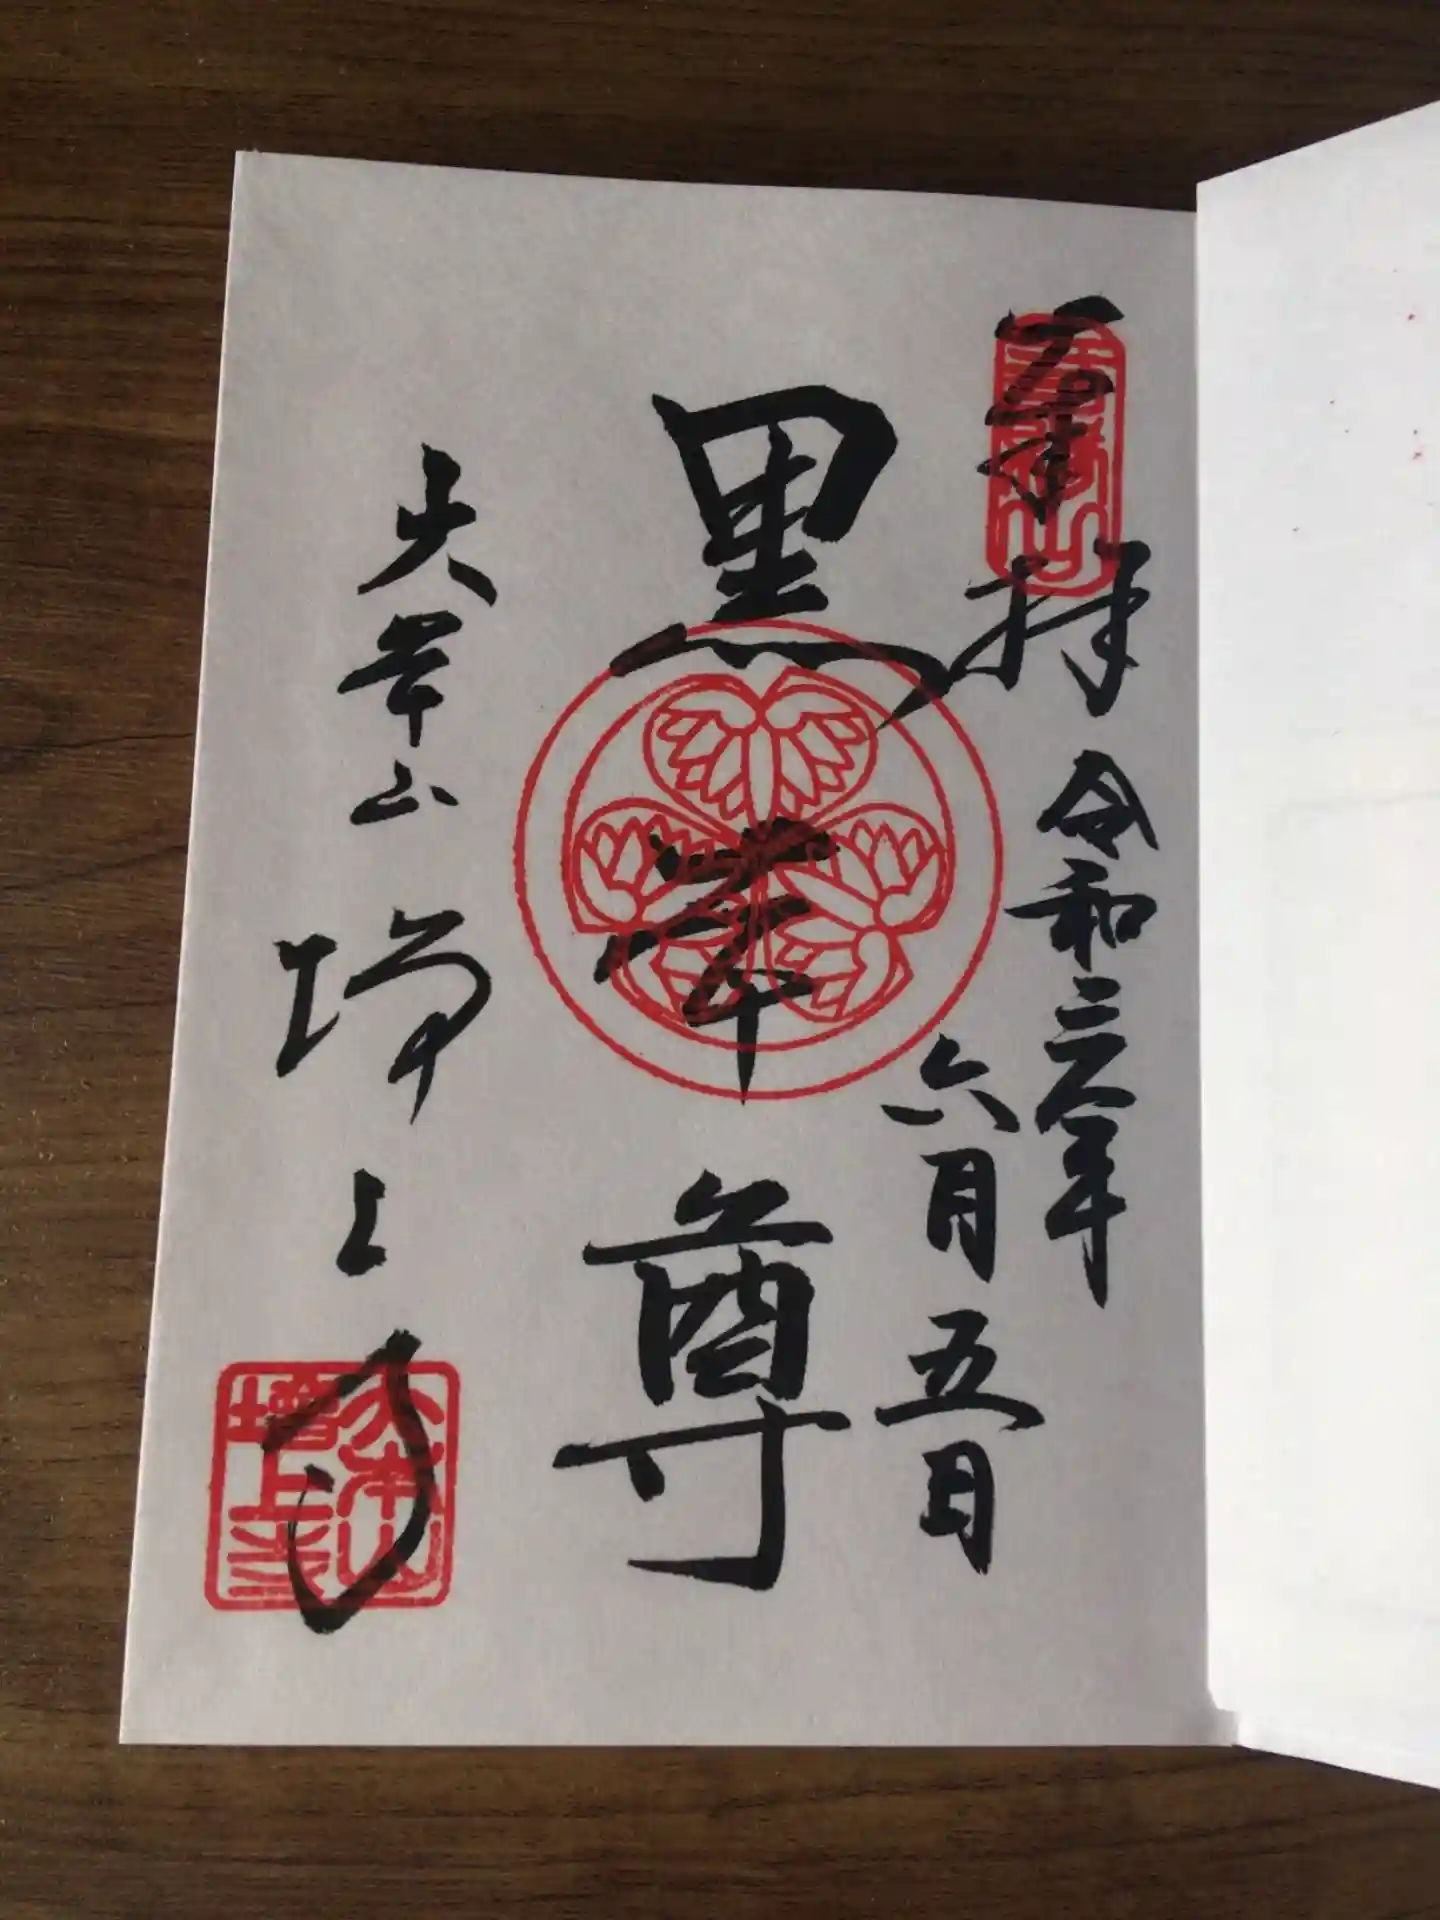 奉拝
令和三年
六月五日
黒本尊
大本山 増上寺
三縁山
大本山
増上寺